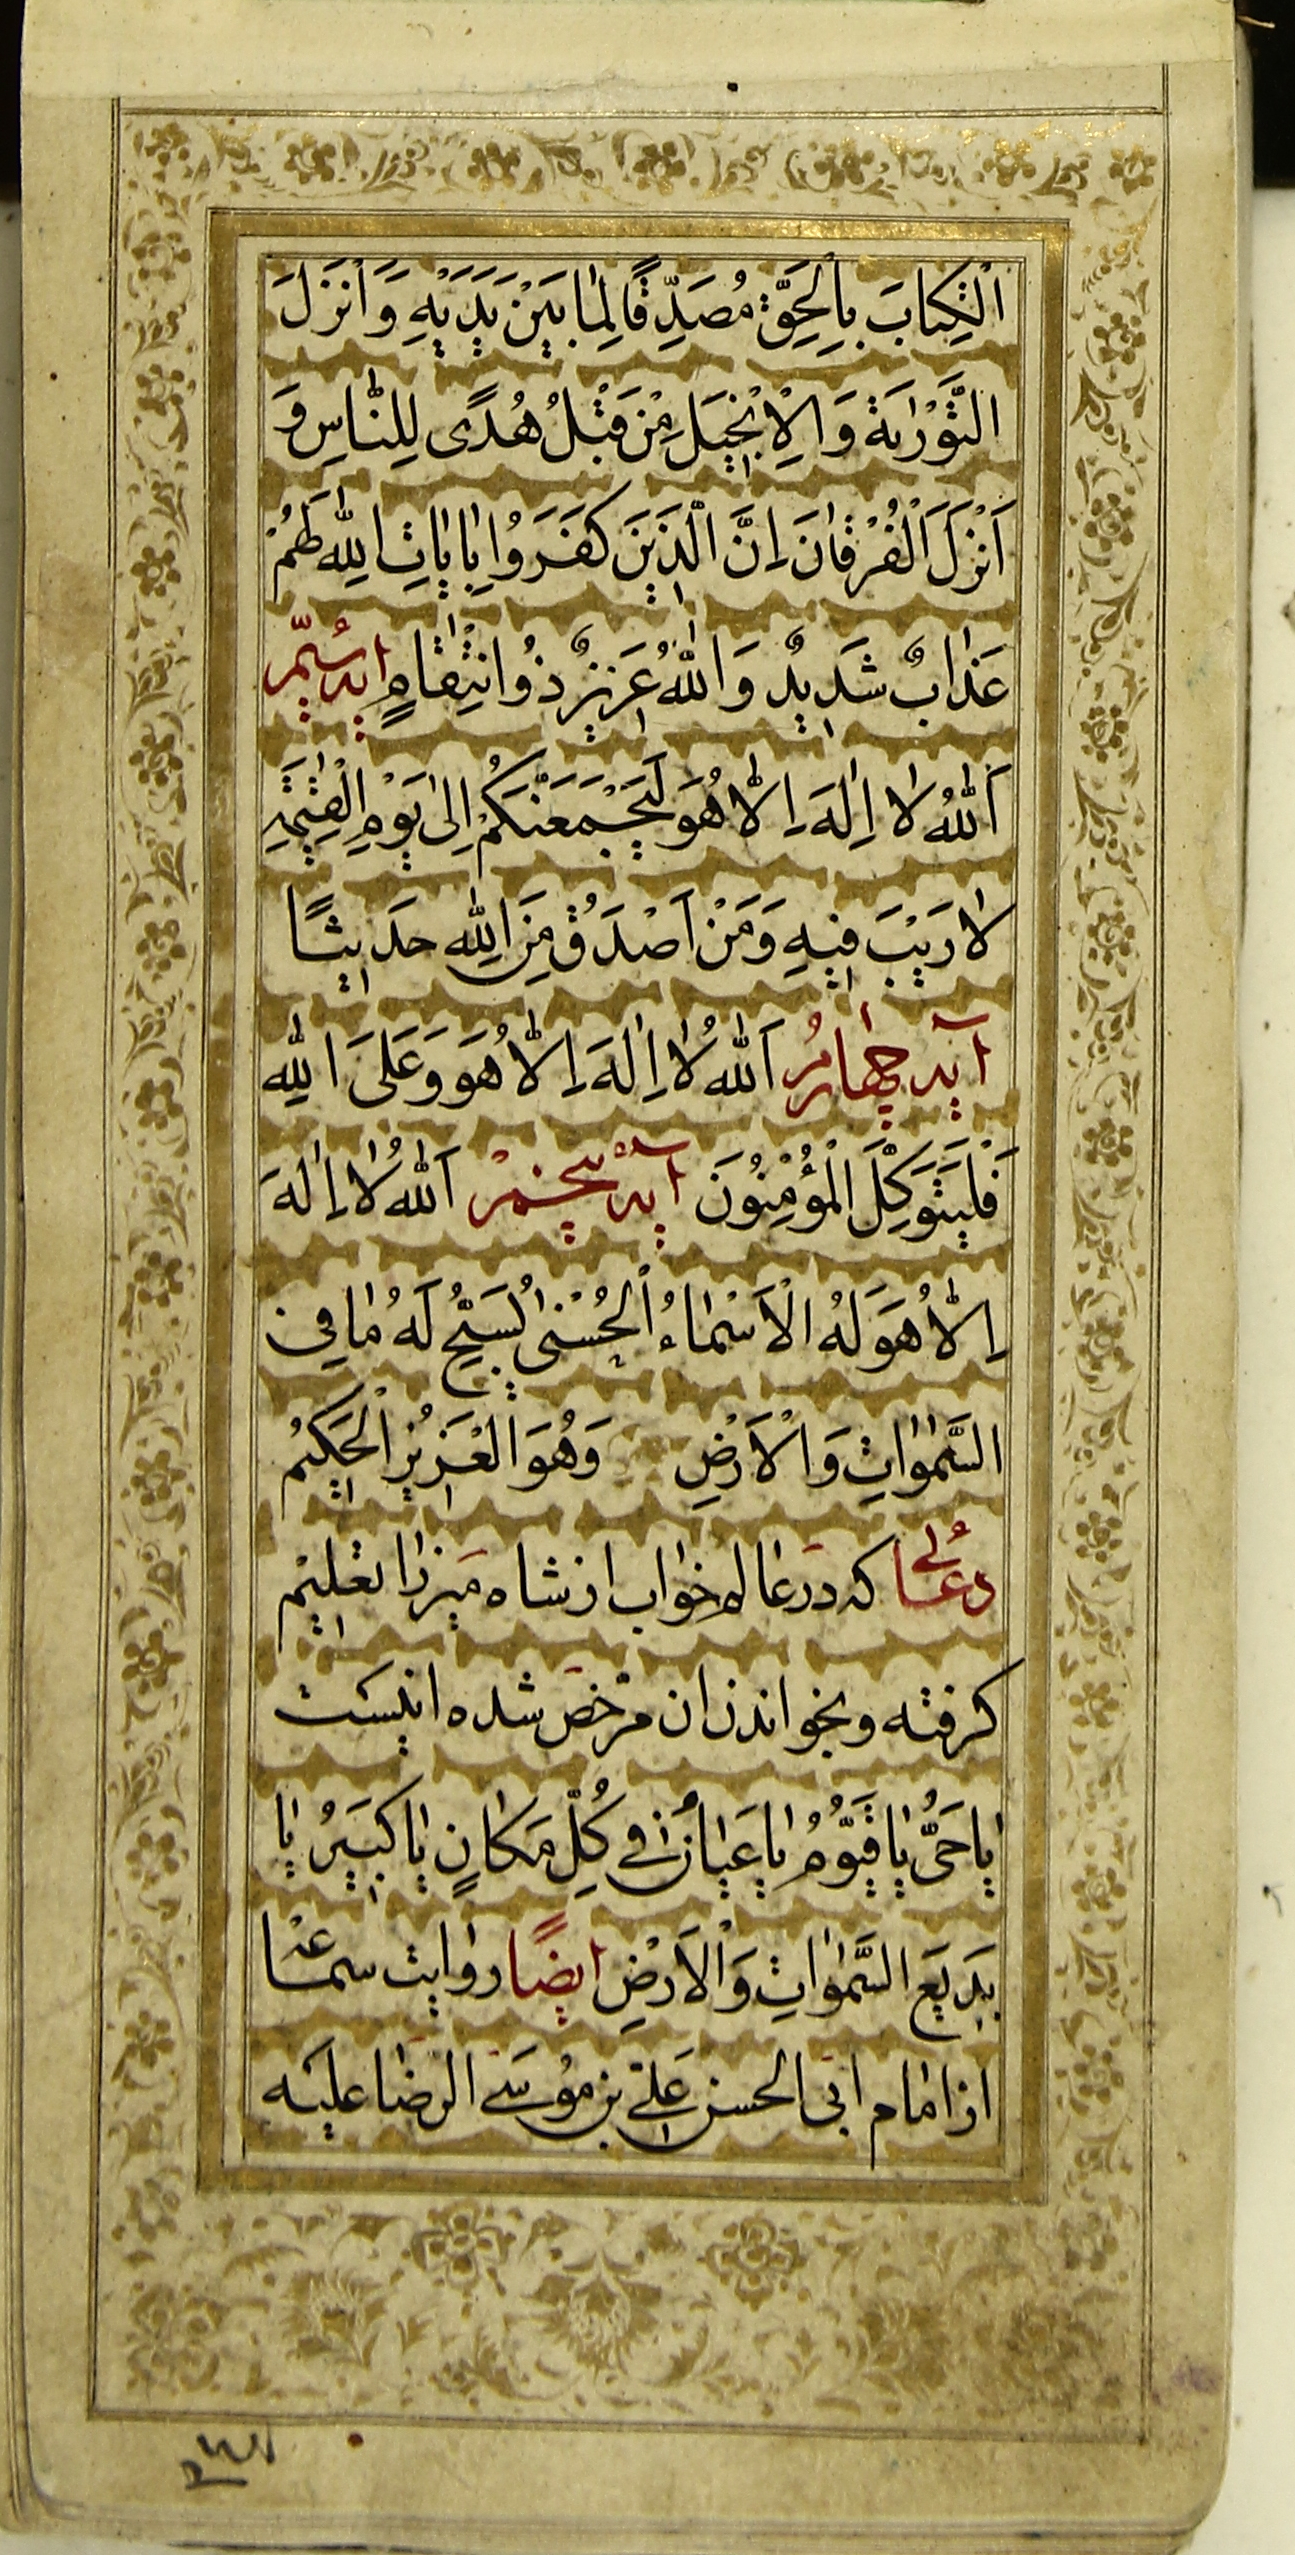 الْكِتَابَ بِالْحَقِّ مُصَدِّقًا لِمَا بَيْنَ يَدَيْهِ وَاَنْزَلَ
التَّوْرٰيةَ وَالْاِنْجِيلَ مِنْ قَبْلُ هُدًى لِلنَّاسِ وَ
اَنْزَلَ الْفُرْقَانَ اِنَّ الَّذِينَ كَفَرَوُا بِاٰيَاتِ اللهِ لَهُمْ
عَذَابٌ شَدِيدٌ وَاللهُ عَزِيزٌ ذُوانْتِقَامٍ ايهٔ سيّم
اَللهُ لَا اِلٰهَ اِلَّا هُوَ لَيَجْمَعَنَّكُمْ اِلٰى يَوْمِ الْقِيٰمَةِ
لَا رَيْبَ فِيهِ وَمَنْ اَصْدَقُ مِنَ اللهِ حَدِيثًا
آيه چهارمُ اَللهُ لَا اِلٰهَ اِلَّا هُوَ وَعَلَى اللهِ
فَلْيَتَوَكَّلِ الْمُؤْمِنُونَ آيه پنجم اَللهُ لَا اِلٰهَ
اِلَّا هُوَ لَهُ الْاَسْمَاءُ الْحُسْنٰى يُسَبِّحُ لَهُ مَا فِي
السَّمٰوَاتِ وَالْاَرْضِ وَهُوَ الْعَزِيزُ الْحَكِيمُ
دعائى كه درعالم خواب از شاه ميرزا تعليم
كرفته و بخواندن ان مرخص شده اينست
يَا حَيُّ يَا قَيُّومُ يَا عَيَانٌ فِي كُلِّ مَكَانٍ يَا كَبِيرُ يَا
بَدِيعَ السَّمٰوَاتِ وَالْاَرْضِ ايضًا روايت سماعه
از امام ابى الحسن على بن موسى الرضا عليه